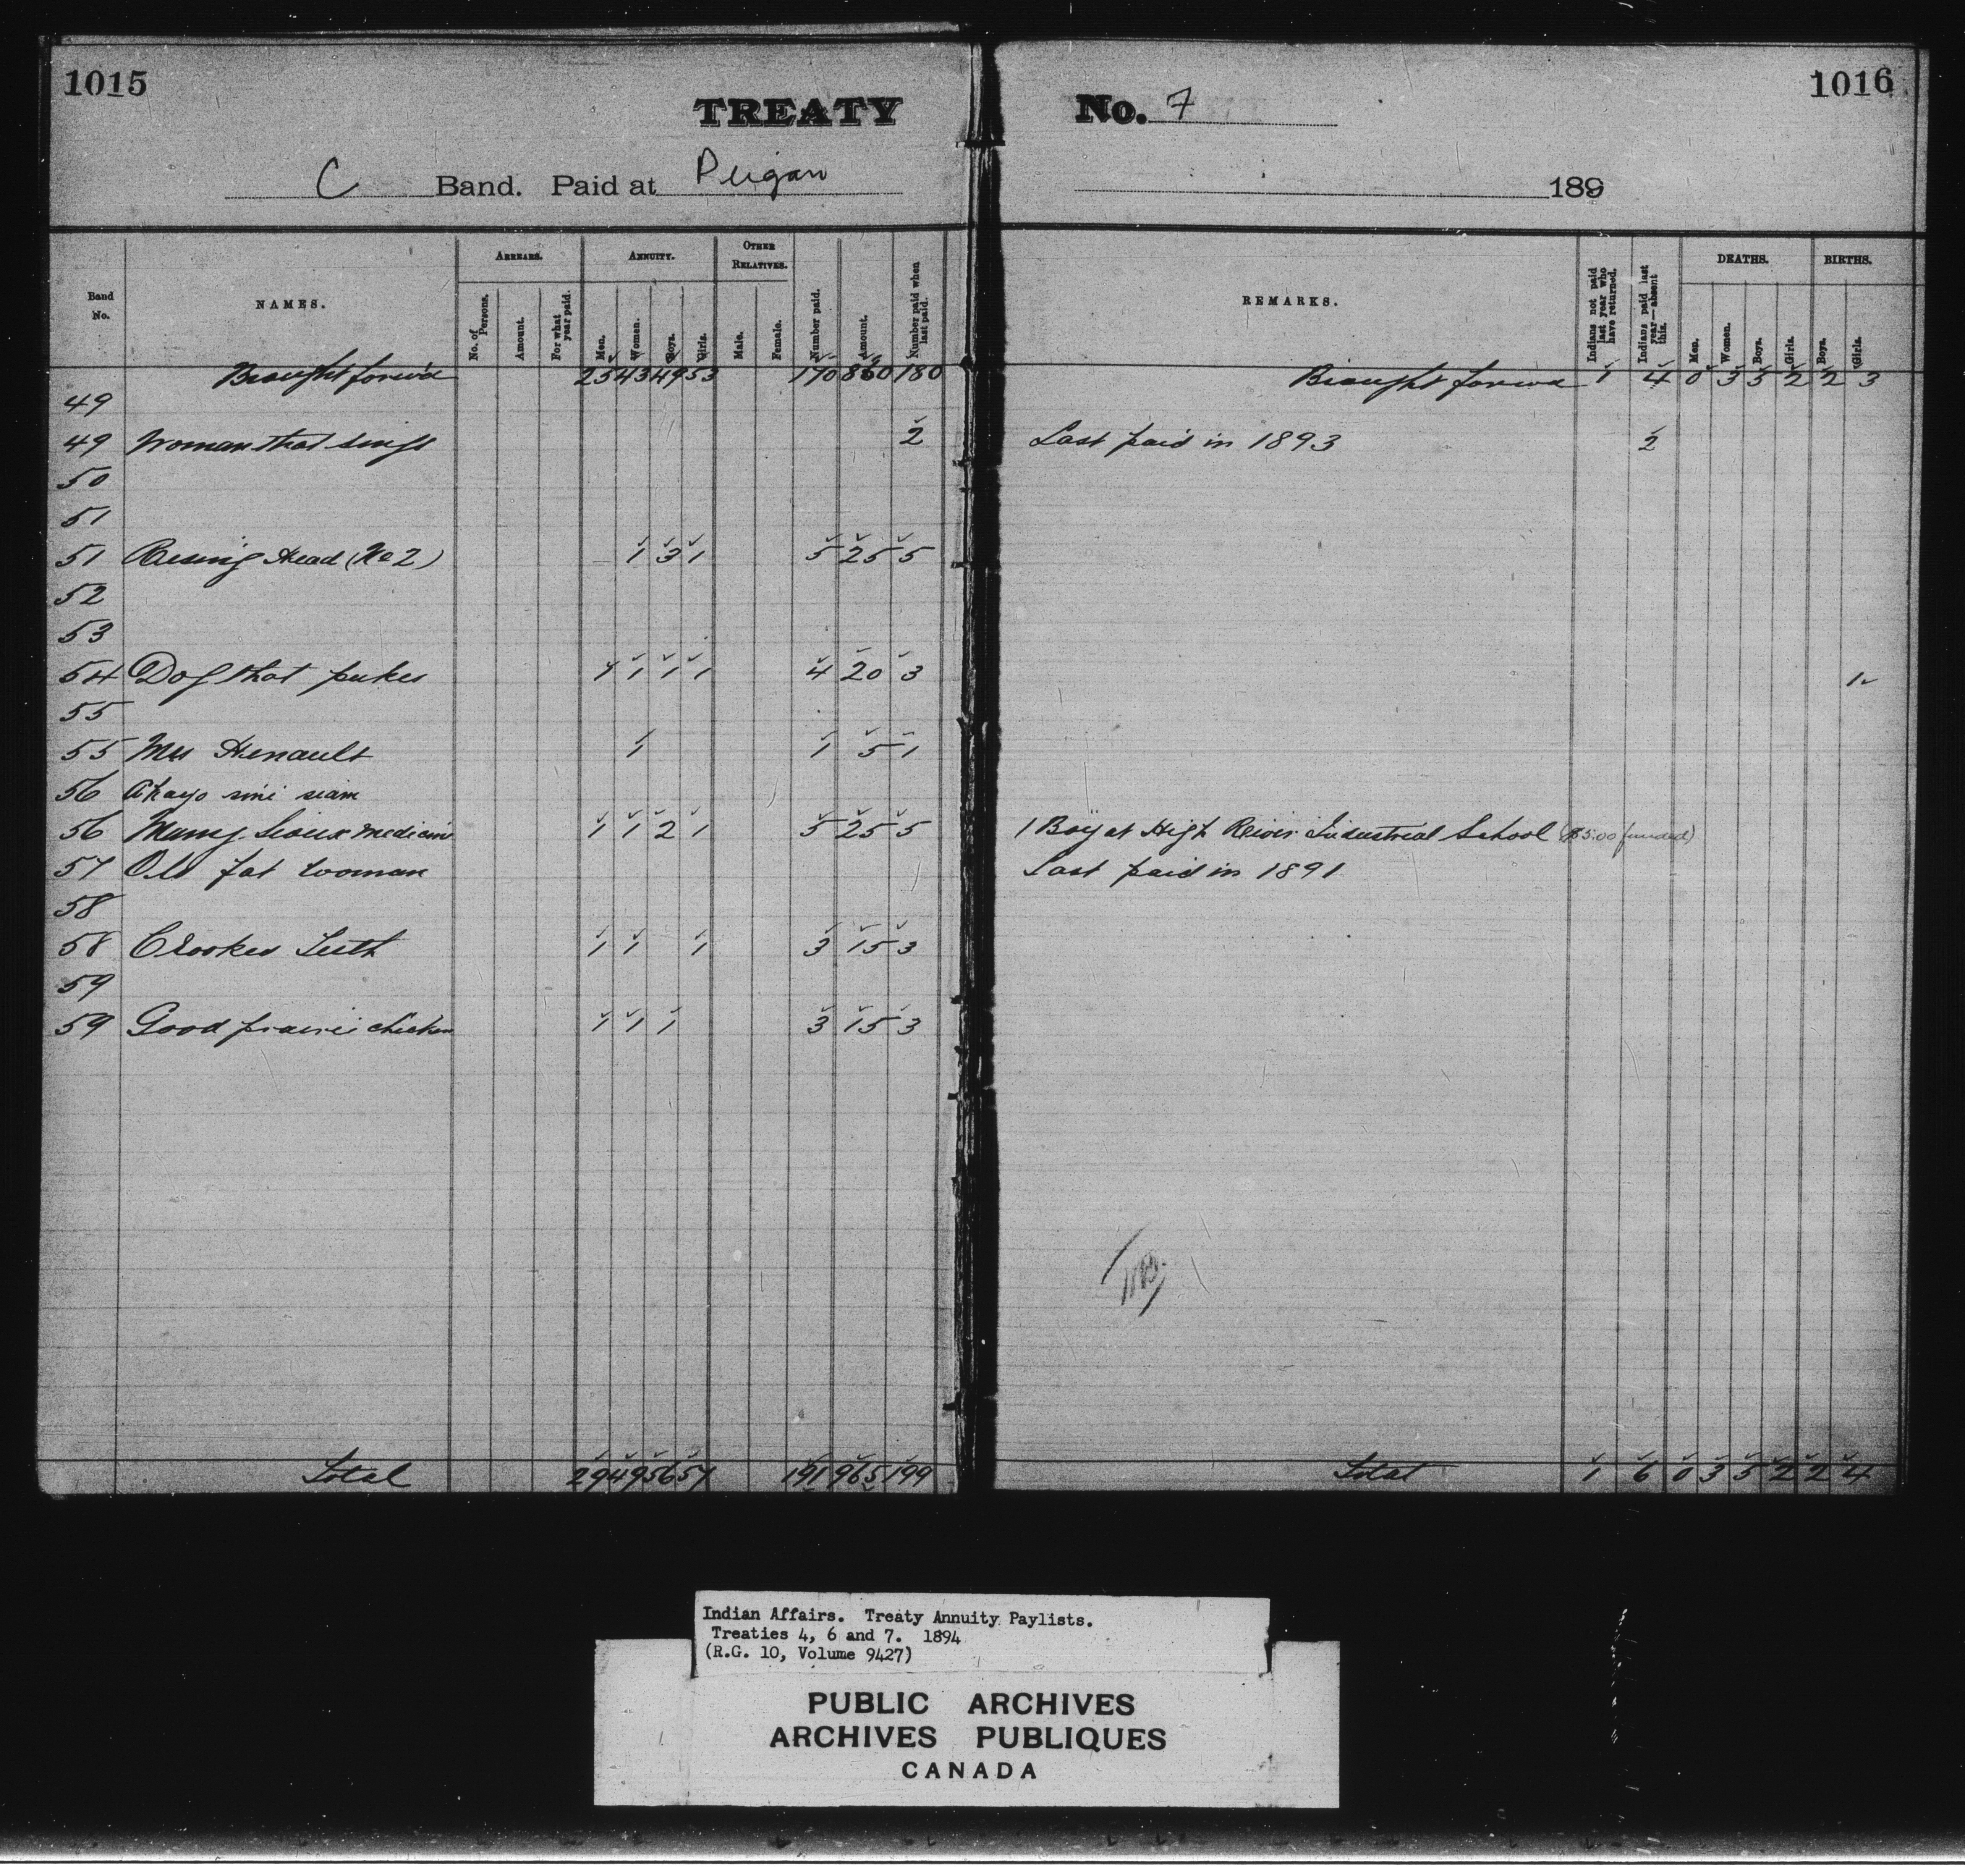 1015
TREATY No. 7
1016
C Band. Paid at Peigan 189
Band No. NAMES. ARREARS. No. of Persons. Amount. For what year paid. ANNUITY. Men. Women. Boys. Girls. OTHER RELATIVES. Male. Female. Number paid. Amount. Number paid when last paid. REMARKS. Indians not paid last year who have returned. Indians paid last year—absent this. DEATHS. Men. Women. Boys. Girls. BIRTHS. Boys. Girls.
Brought forwd 25 43 49 53 170 860 180 Brought forwd 1 4 0 3 5 2 2 3
49
49 Woman that sings 2 Last paid in 1893 2
50
51
51 Rising Head (No 2) 1 3 1 5 25 5
52
53
54 Dog that pukes 1 1 1 1 4 20 3 1
55
55 Mrs Henault 1 1 5 1
56 Akayo sini siam
56 Many Sioux medicine 1 1 2 1 5 25 5 1 Boy at High River Industrial School ($5.00 funded)
57 Old fat woman Last paid in 1891
58
58 Crooked Teeth 1 1 1 3 15 3
59
59 Good prairie chicken 1 1 1 3 15 3
Total 29 49 56 57 191 965 199 Total 1 6 0 3 5 2 2 4
Indian Affairs. Treaty Annuity Paylists.
Treaties 4, 6 and 7. 1894
(R.G. 10, Volume 9427)
PUBLIC ARCHIVES
ARCHIVES PUBLIQUES
CANADA